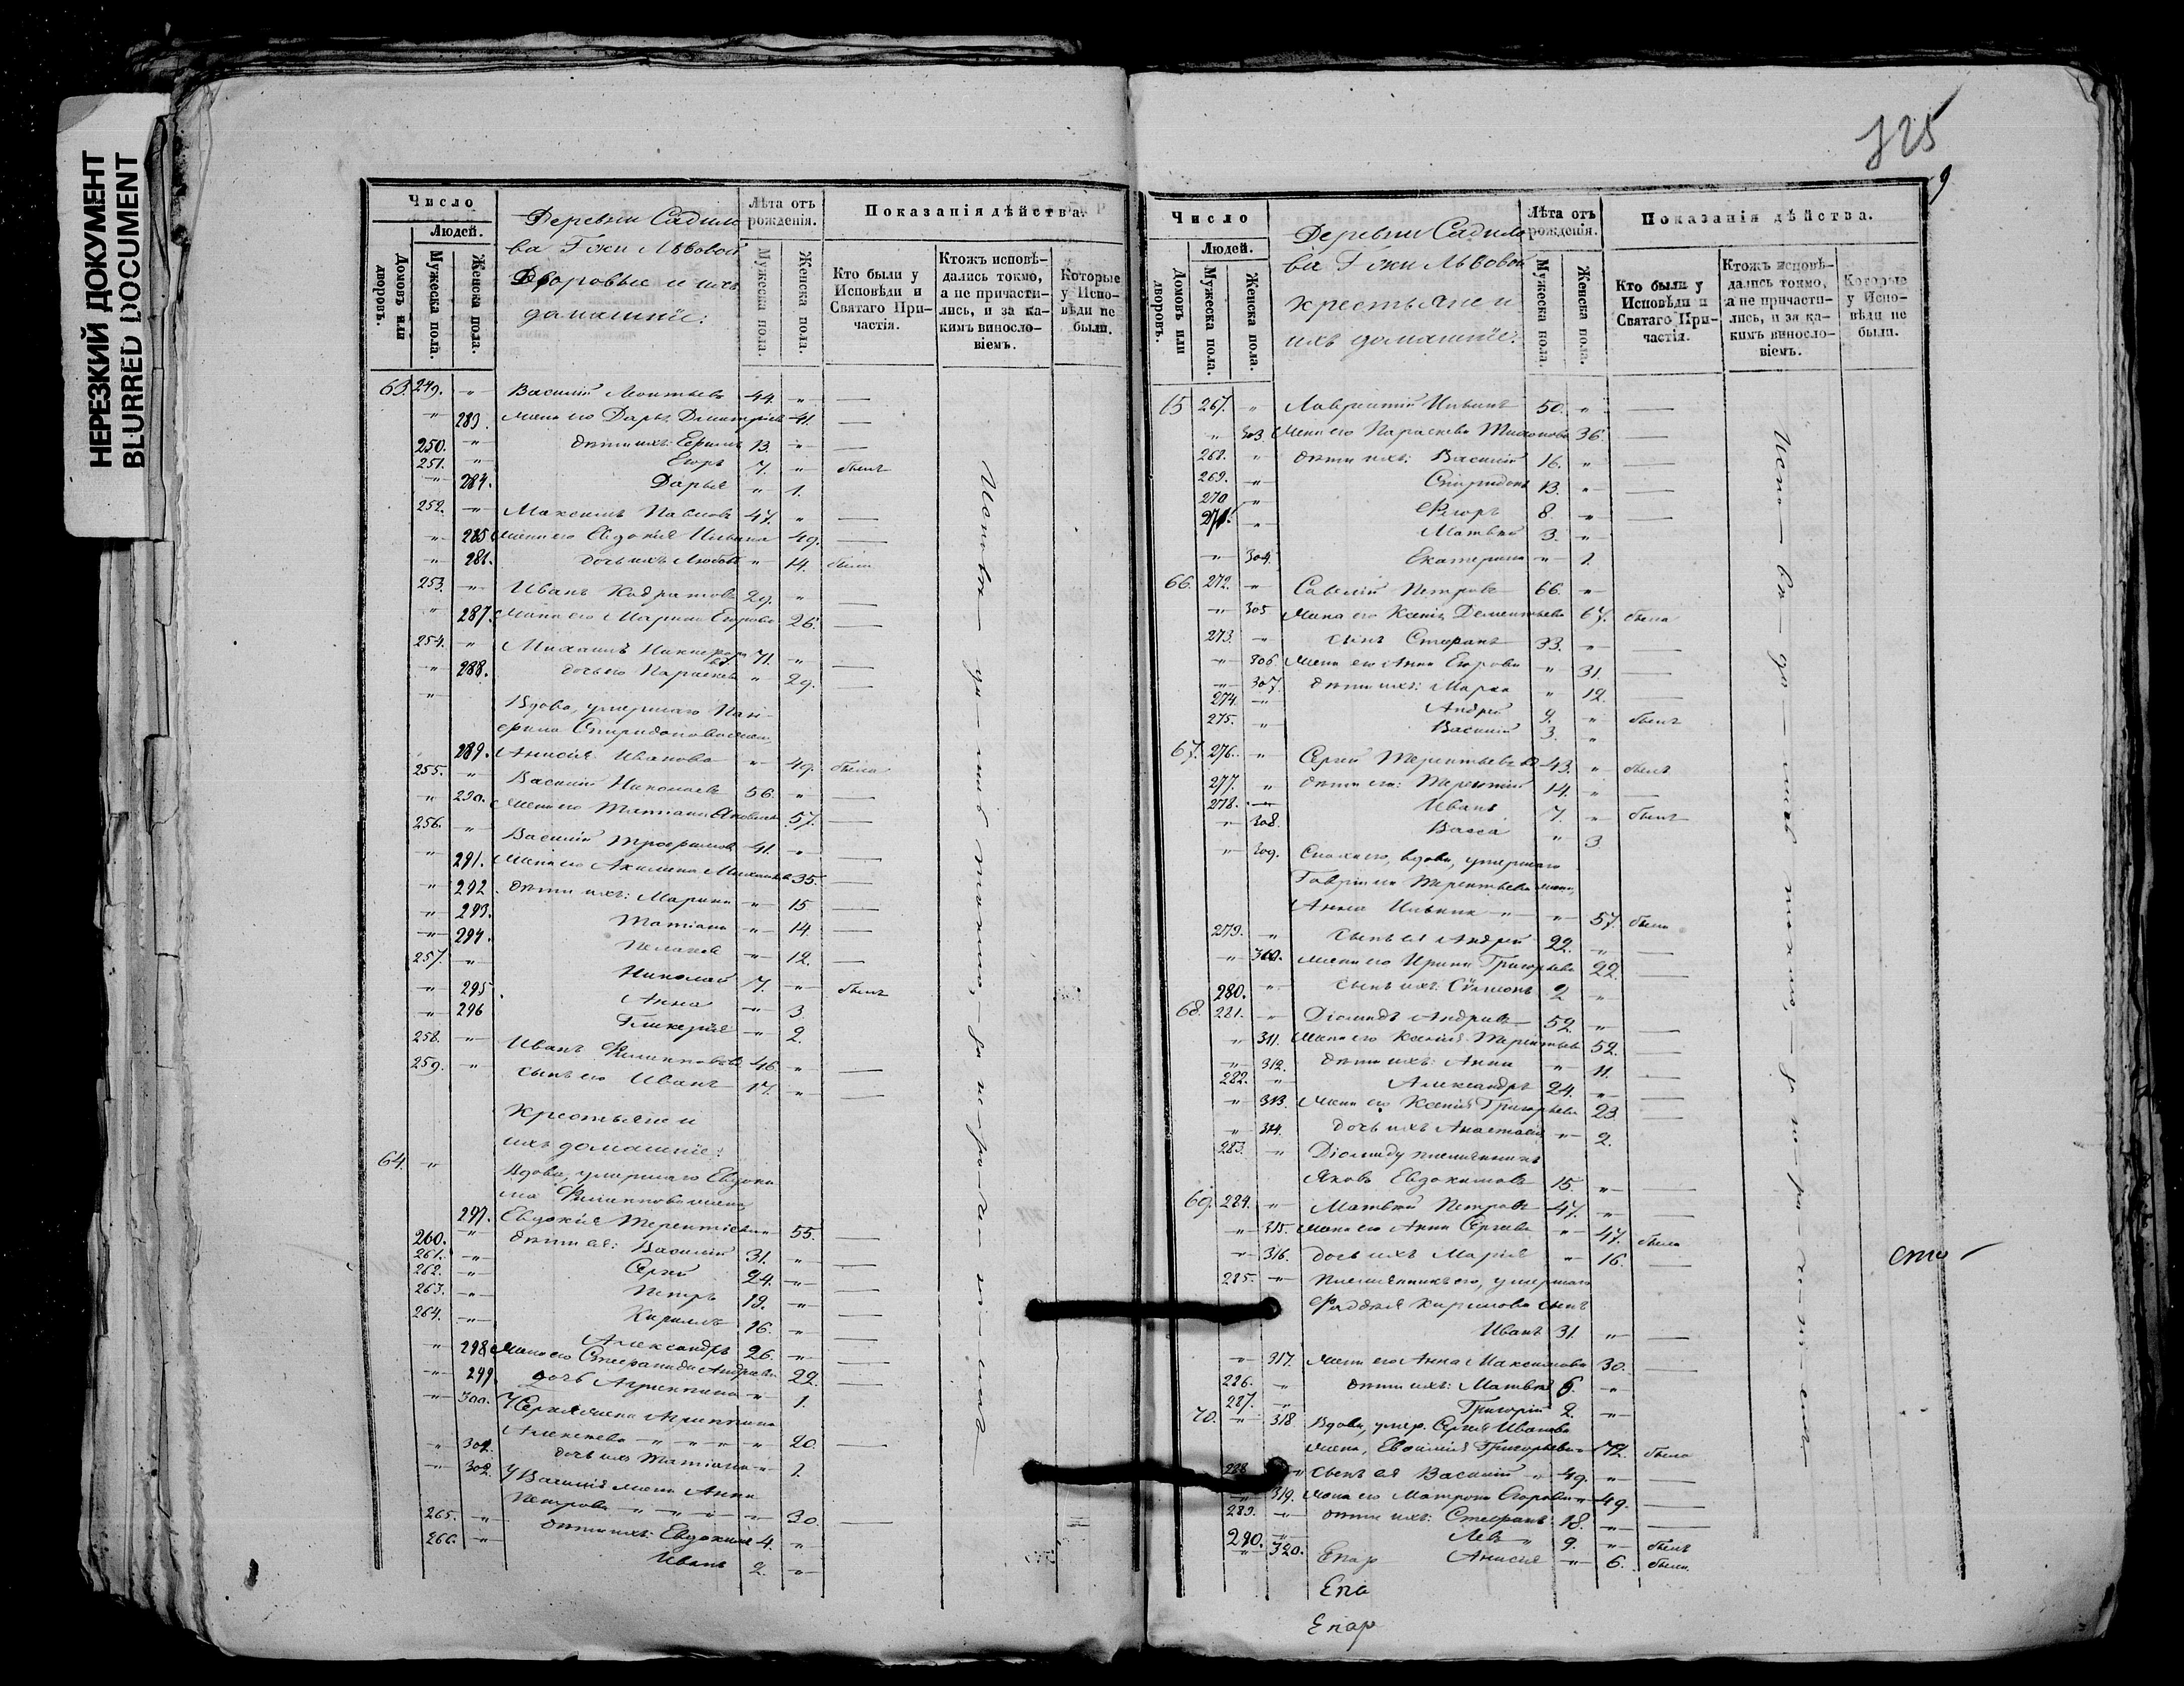 НЕРЕЗКИЙ ДОКУМЕНТ
BLURRED DOCUMENT
Число
Людей.
Домовъ или дворовъ.
Мужеска пола.
Женска пола.
Деревни Садило
ва Г жи Львовой
Дворовые и ихъ
домашніе:
Лѣта отъ рожденія.
Мужеска пола.
Женска пола.
Показанія дѣйства.
Кто были у Исповѣди и Святаго Причастія.
Ктожъ исповѣдались токмо, а не причастились, и за какимъ винословіемъ.
Которые у Исповѣди не были.
63. 249. " Василій Леонтьевъ 44. " —
" 283. жена его Дарья Димитріева 41. —
250. " дѣти ихъ: Ефимъ 13. " —
251. " Егоръ 7. " былъ
" 284. Дарья " 1.
252. " Максимъ Павловъ 47. " —
" 285 жена его Евдокія Ильина 49. —
" 286. дочь ихъ Любовь " 14. была
253. " Иванъ Кодратовъ 29. " —
" 287. жена его Марина Егорова 26. —
254. " Михаилъ Никифоровъ 71. " —
" 288. дочь его Параскева " 29. —
" Вдова, умершаго Пан
фила Спиридонова жена,
289. Анисія Иванова " 49. была
255. " Василій Николаевъ 56. " —
" 290. жена его Татіана Яковлева 57. —
256. " Василій Трофимовъ 41. " —
" 291. жена его Акилина Михайлова 35. —
" 292. дѣти ихъ: Марина " 15 —
" 293. Татіана " 14. —
" 294. Пелагея " 12. —
257. " Николай 7. " былъ
" 295 Анна " 3.
" 296 Гликерія " 2.
258. " Иванъ Филипповъ 46. " —
259. " сынъ его Иванъ 17. " —
Крестьяне и
ихъ домашніе:
64. " Вдова, умершаго Евдоки
ма Филиппова жена,
297. Евдокія Терентіева 55. —
260. " дѣти ея: Василій 31. " —
261. " Сергѣй 24. " —
262. " Петръ 19. " —
263. " Кириллъ 16. " —
264. " Александръ 26. " —
" 298 жена его Степанида Андреева 22. —
" 299. дочь Агриппина " 1.
" 300. У Сергія жена Агриппина
Алексѣева " " " " 20. —
" 301. дочь ихъ Татіана " 1.
" 302. У Василія жена Анна
Петрова " " " " 30. —
265. " дѣти ихъ: Евдокимъ 4. "
266. " Иванъ 2. "
725
9
Число
Людей.
Домовъ или дворовъ.
Мужеска пола.
Женска пола.
Деревни Садило
ва Г жи Львовой
крестьяне и
ихъ домашніе:
Лѣта отъ рожденія.
Мужеска пола.
Женска пола.
Показанія дѣйства.
Кто были у Исповѣди и Святаго Причастія.
Ктожъ исповѣдались токмо, а не причастились, и за какимъ винословіемъ.
Которые у Исповѣди не были.
15 267. " Лаврентій Ильинъ 50. " —
" 303. жена его Параскева Тихонова 36. —
268. " дѣти ихъ: Василій 16. " —
269. " Спиридонъ 13. " —
270 " Ѳедоръ 8 " —
271. " Матвѣй 3. "
" 304. Екатерина " 1.
66. 272. " Савелій Петровъ 66. "
" 305. жена его Ксенія Дементьева 67. была
273. " сынъ Стефанъ 33. " —
" 306. жена его Анна Егорова " 31. —
" 307. дѣти ихъ: Марѳа " 12. —
274. " Андрей 9. " былъ
275. " Василій 3. "
67. 276. " Сергѣй Терентьевъ 43. " былъ
277. " дѣти его: Терентій 14. " —
278. " Иванъ 7. " былъ
" 308. Васса " 3
" 309. Сноха его, вдова, умершаго
Гавріила Терентьева жена,
Анна Ильина " " 57. была
279. " сынъ ея Андрей 22. " —
" 310. жена его Ирина Григорьева 22. —
280. " сынъ ихъ: Сѵмеонъ 2 "
68. 281. " Діомидъ Андреевъ 52. " —
" 311. жена его Ксенія Терентьева 52. —
" 312. дѣти ихъ: Анна " 11. —
282. " Александръ 24. " —
" 313. жена его Ксенія Григорьева 23. —
" 314. дочь ихъ Анастасія " 2.
283. " Діомиду племянникъ
Яковъ Евдокимовъ 15. " —
69. 284. " Матвѣй Петровъ 47. " —
" 315. жена его Анна Сергѣева " 47. была
" 316. дочь ихъ Марія " 16. —
285. " племянникъ его, умершаго
Ѳаддея Кирилова сынъ
Иванъ 31. " —
" 317. жена его Анна Максимова 30. —
286. " дѣти ихъ: Матвѣй 6. "
287. " Григорій 2. "
70. " 318 Вдова, умер. Сергія Иванова
жена, Евѳимія Григорьева 72. была
288 " сынъ ея Василій " 49. " —
" 319. жена его Матрона Егорова " 49. —
289. " дѣти ихъ: Стефанъ 18. " —
290. " Левъ " 9. " былъ
" 320. Анисія " 6. была.
Епар
Епа
Епар